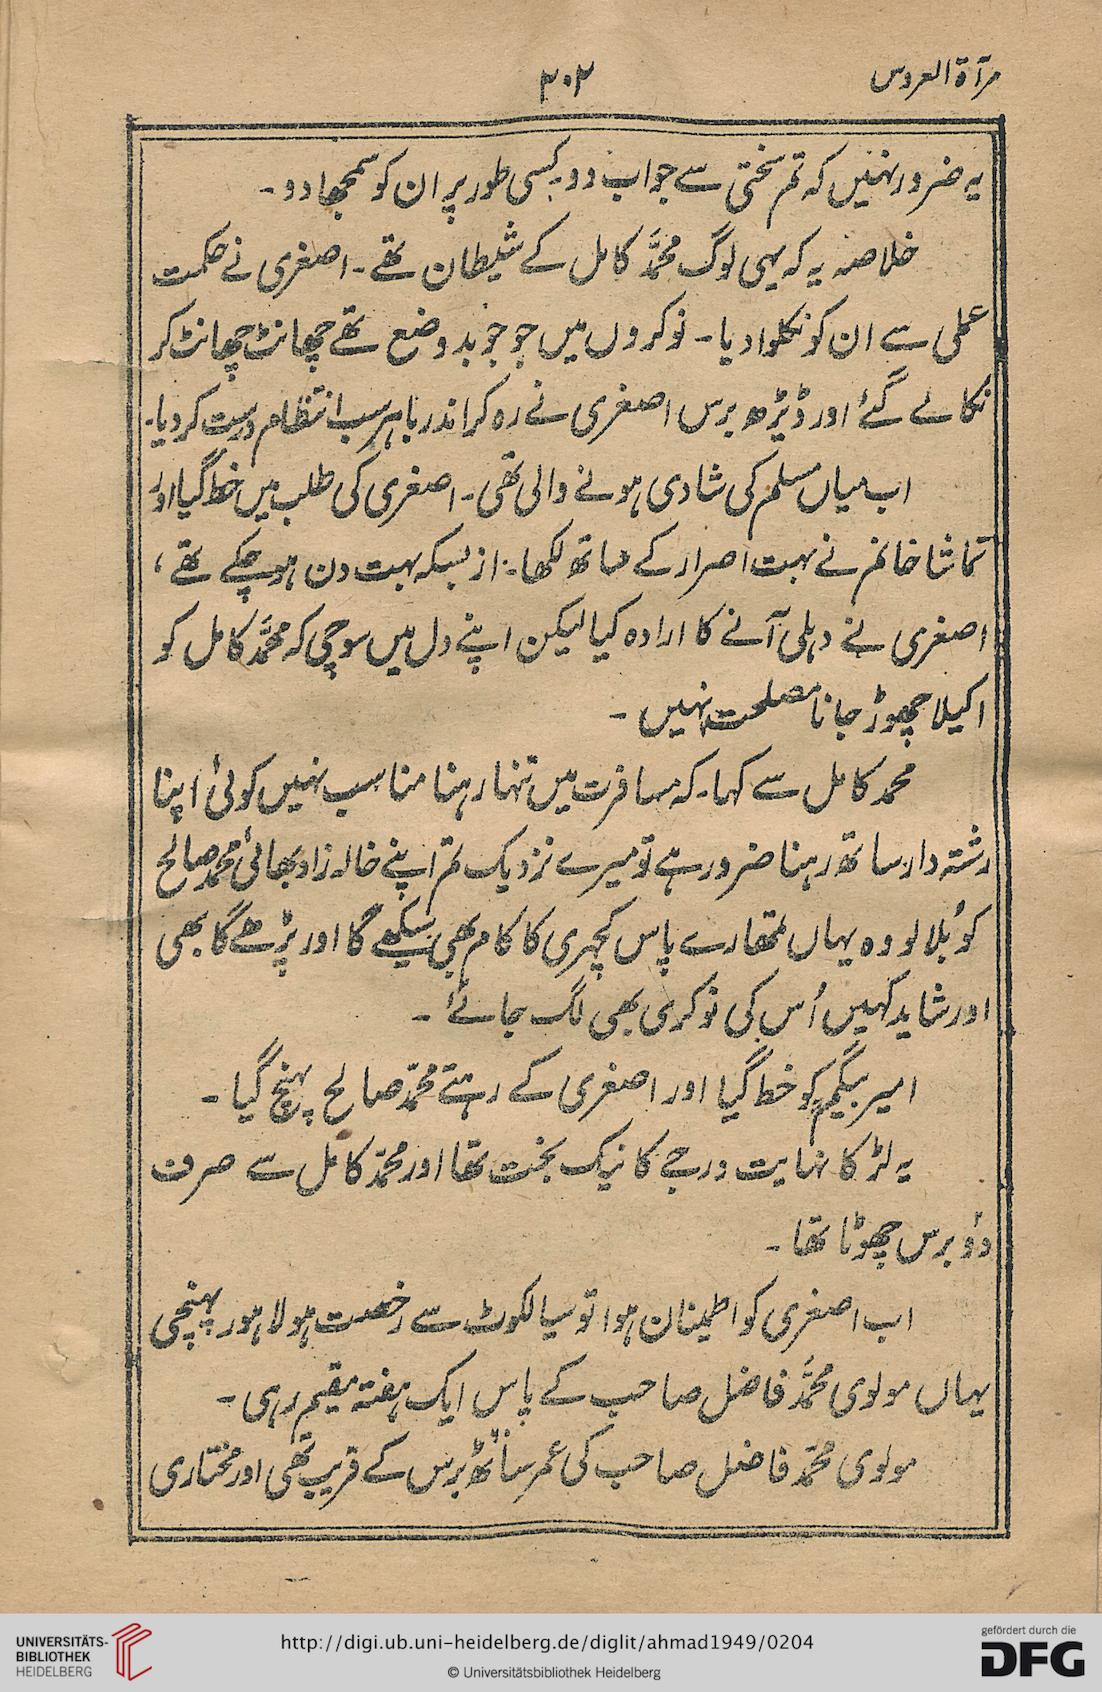 مرآۃ العروس
۲۰۲
یہ ضرور نہیں کہ تم سختی سے جواب دو۔ کسی طور پر ان کو سمجھا دو۔
خلاصہ یہ کہ یہی لوگ محمّد کامل کے شیطان تھے۔ اصغری نے حکمت
عملی سے ان کو نکلوا دیا۔ نوکروں میں جو جو بدوضع تھے چھانٹ چھانٹ کر
نکالے گئے اور ڈیڑھ برس اصغری نے رہ کر اندر باہر سب انتظام درست کر دیا۔
اب میاں مسلم کی شادی ہونے والی تھی۔ اصغری کی طلب میں خط گیا اور
تماشا خانم نے بہت اصرار کے ساتھ لکھا۔ از بسکہ بہت دن ہو چکے تھے،
اصغری نے دہلی آنے کا ارادہ کیا لیکن اپنے دل میں سوچی کہ محمّد کامل کو
اکیلا چھوڑ جانا مصلحت نہیں۔
محمد کامل سے کہا۔ کہ مسافرت میں تنہا رہنا مناسب نہیں کوئی اپنا
رشتہ دار ساتھ رہنا ضرور ہے تو میرے نزدیک تم اپنے خالہ زاد بھائی محمد صالح
کو بُلا لو وہ یہاں تمھارے پاس کچہری کا کام بھی سیکھے گا اور پڑھے گا بھی
اور شاید کہیں اُس کی نوکری بھی لگ جائے۔
امیر بیگم کو خط گیا اور اصغری کے رہتے محمّد صالح پہنچ گیا۔
یہ لڑکا نہایت درجے کا نیک بخت تھا اور محمّد کامل سے صرف
دو برس چھوٹا تھا۔
اب اصغری کو اطمینان ہوا تو سیالکوٹ سے رخصت ہو لاہور پہنچی
یہاں مولوی محمّد فاضل صاحب کے پاس ایک ہفتہ مقیم رہی۔
مولوی محمّد فاضل صاحب کی عمر ساٹھ برس کے قریب تھی اور مختاری
UNIVERSITÄTS-
BIBLIOTHEK
HEIDELBERG
http://digi.ub.uni-heidelberg.de/diglit/ahmad1949/0204
© Universitätsbibliothek Heidelberg
gefördert durch die
DFG